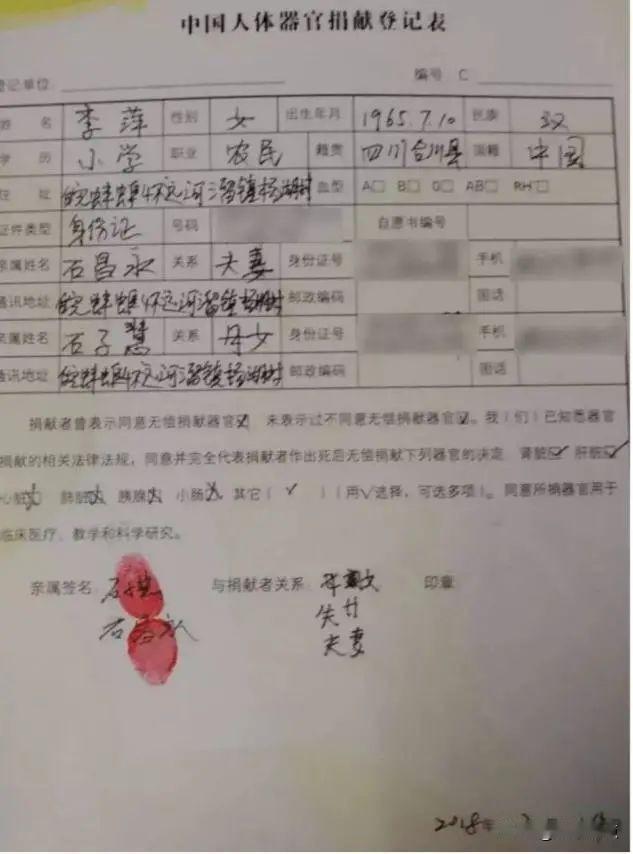 中国人体器官捐献登记表
登记单位: 编号 C
姓 名 李萍 性别 女 出生年月 1965.7.10 民族 汉
学 历 小学 职业 农民 籍贯 四川合川县 国籍 中国
住 址 皖蚌埠怀远河溜镇杨湖村 血型 A□ B□ O□ AB□ RH□
证件类型 身份证 号码 自愿书编号
亲属姓名 石昌永 关系 夫妻 身份证号 手机
通讯地址 皖蚌埠怀远河溜镇杨湖村 邮政编码 固话
亲属姓名 石子慧 关系 母女 身份证号 手机
通讯地址 皖蚌埠怀远河溜镇杨湖村 邮政编码 固话
捐献者曾表示同意无偿捐献器官☑ 未表示过不同意无偿捐献器官☑。我(们)已知悉器官
捐献的相关法律法规,同意并完全代表捐献者作出死后无偿捐献下列器官的决定 肾脏☑ 肝脏☑
心脏 肺脏 胰腺 小肠 其它(√)(用√选择,可选多项)。同意所捐器官用于
临床医疗、教学和科学研究。
亲属签名: 与捐献者关系: 印章:
石昌永
夫妻
2018年